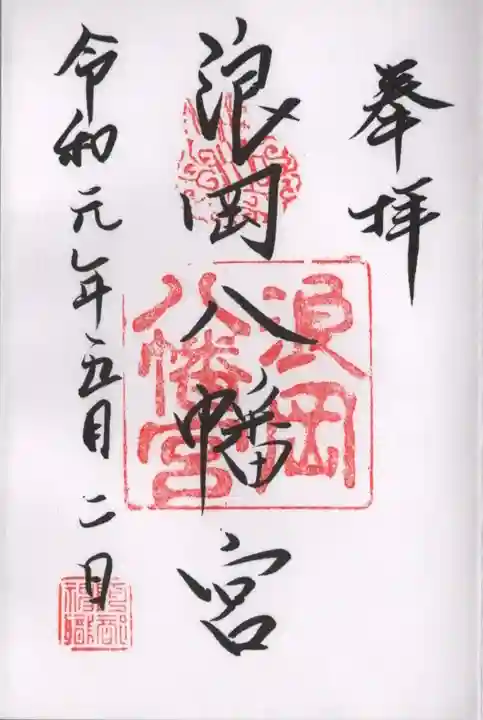 奉拝
浪岡八幡宮
浪岡
八幡宮
令和元年五月二日